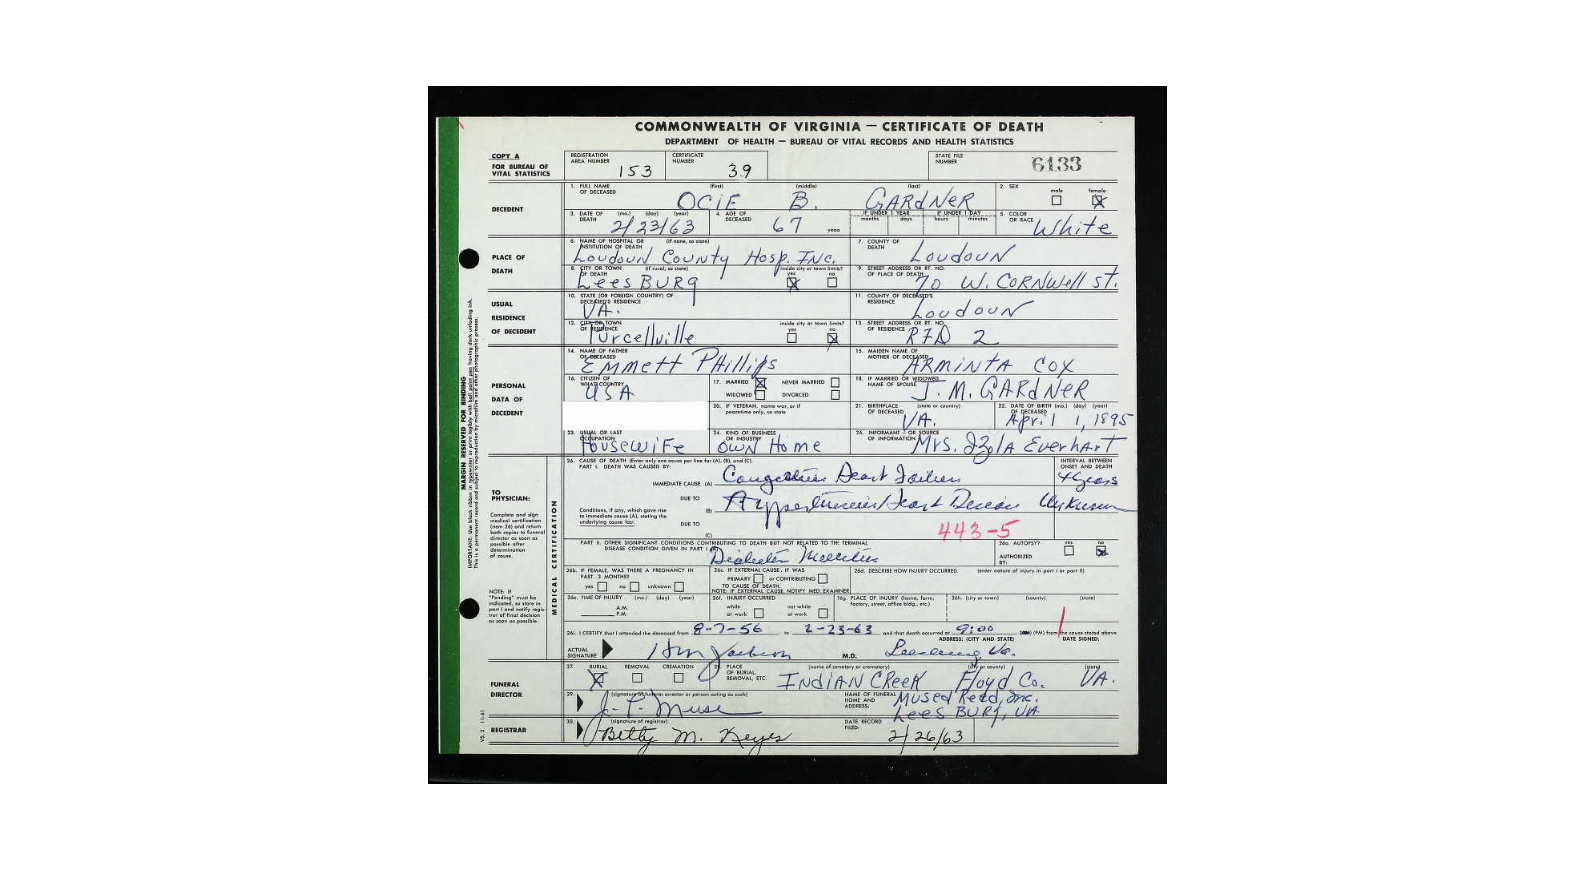 COMMONWEALTH OF VIRGINIA — CERTIFICATE OF DEATH
DEPARTMENT OF HEALTH — BUREAU OF VITAL RECORDS AND HEALTH STATISTICS
COPY A
FOR BUREAU OF VITAL STATISTICS
REGISTRATION AREA NUMBER 153
CERTIFICATE NUMBER 39
STATE FILE NUMBER 6133
DECEDENT
1. FULL NAME OF DECEASED (first) (middle) (last) OCIE B. GARDNER
2. SEX male female
3. DATE OF DEATH (mo.) (day) (year) 2/23/63
4. AGE OF DECEASED 67 years
IF UNDER 1 YEAR months days IF UNDER 1 DAY hours minutes
5. COLOR OR RACE White
PLACE OF DEATH
6. NAME OF HOSPITAL OR INSTITUTION OF DEATH (if none, so state) Loudoun County Hosp. Inc.
7. COUNTY OF DEATH Loudoun
8. CITY OR TOWN OF DEATH (if rural, so state) LeesBurg inside city or town limits? yes no
9. STREET ADDRESS OR RT. NO. OF PLACE OF DEATH 70 W. CORNWell ST.
USUAL RESIDENCE OF DECEDENT
10. STATE (OR FOREIGN COUNTRY) OF DECEASED'S RESIDENCE VA.
11. COUNTY OF DECEASED'S RESIDENCE Loudoun
12. CITY OR TOWN OF RESIDENCE Purcellville inside city or town limits? yes no
13. STREET ADDRESS OR RT. NO. OF RESIDENCE RFD 2
PERSONAL DATA OF DECEDENT
14. NAME OF FATHER OF DECEASED Emmett Phillips
15. MAIDEN NAME OF MOTHER OF DECEASED ARMINTA COX
16. CITIZEN OF WHAT COUNTRY USA
17. MARRIED NEVER MARRIED
WIDOWED DIVORCED
18. IF MARRIED OR WIDOWED NAME OF SPOUSE J. M. GARDNER
20. IF VETERAN, name war, or if peacetime only, so state
21. BIRTHPLACE OF DECEASED (state or country) VA.
22. DATE OF BIRTH (mo.) (day) (year) OF DECEASED April 1, 1895
23. USUAL OR LAST OCCUPATION Housewife
24. KIND OF BUSINESS OR INDUSTRY OWN Home
25. INFORMANT OR SOURCE OF INFORMATION Mrs. Everhart
MARGIN RESERVED FOR BINDING
TO PHYSICIAN:
Complete and sign medical certification (item 26) and return both copies to funeral director as soon as possible after determination of cause.
NOTE: If "Pending" must be indicated, so state in part I and notify registrar of final decision as soon as possible.
MEDICAL CERTIFICATION
26. CAUSE OF DEATH (Enter only one cause per line for (A), (B), and (C).
PART I. DEATH WAS CAUSED BY:
INTERVAL BETWEEN ONSET AND DEATH
IMMEDIATE CAUSE (A) Congestive Heart Failure 4 years
DUE TO (B) Hypertensive Heart Disease Unknown
Conditions, if any, which gave rise to immediate cause (A), stating the underlying cause last.
DUE TO (C)
443-5
PART II. OTHER SIGNIFICANT CONDITIONS CONTRIBUTING TO DEATH BUT NOT RELATED TO THE TERMINAL DISEASE CONDITION GIVEN IN PART I
Diabetes Mellitus
26a. AUTOPSY? yes no
AUTHORIZED BY:
26b. IF FEMALE, WAS THERE A PREGNANCY IN PAST 3 MONTHS? yes no unknown
26c. IF EXTERNAL CAUSE, IT WAS PRIMARY or CONTRIBUTING TO CAUSE OF DEATH.
NOTE: IF EXTERNAL CAUSE, NOTIFY MED. EXAMINER
26d. DESCRIBE HOW INJURY OCCURRED. (enter nature of injury in part I or part II)
26e. TIME OF INJURY (mo.) (day) (year) A.M. P.M.
26f. INJURY OCCURRED while at work not while at work
26g. PLACE OF INJURY (home, farm, factory, street, office bldg., etc.)
26h. (city or town) (county) (state)
26i. I CERTIFY that I attended the deceased from 8-7-56 to 2-23-63 and that death occurred at 9:00 (PM) from the cause stated above
ADDRESS: (CITY AND STATE) DATE SIGNED:
ACTUAL SIGNATURE M.D. Va.
FUNERAL DIRECTOR
27. BURIAL REMOVAL CREMATION
28. PLACE OF BURIAL, REMOVAL, ETC. (name of cemetery or crematory) (city or county) (state) INDIAN CREEK Floyd Co. VA.
29. (signature of funeral director or person acting as such) Muse
NAME OF FUNERAL HOME AND ADDRESS: Inc.
LeesBurg, VA.
REGISTRAR
30. (signature of registrar) Betty M. Keyes
DATE RECORD FILED: 2/26/63